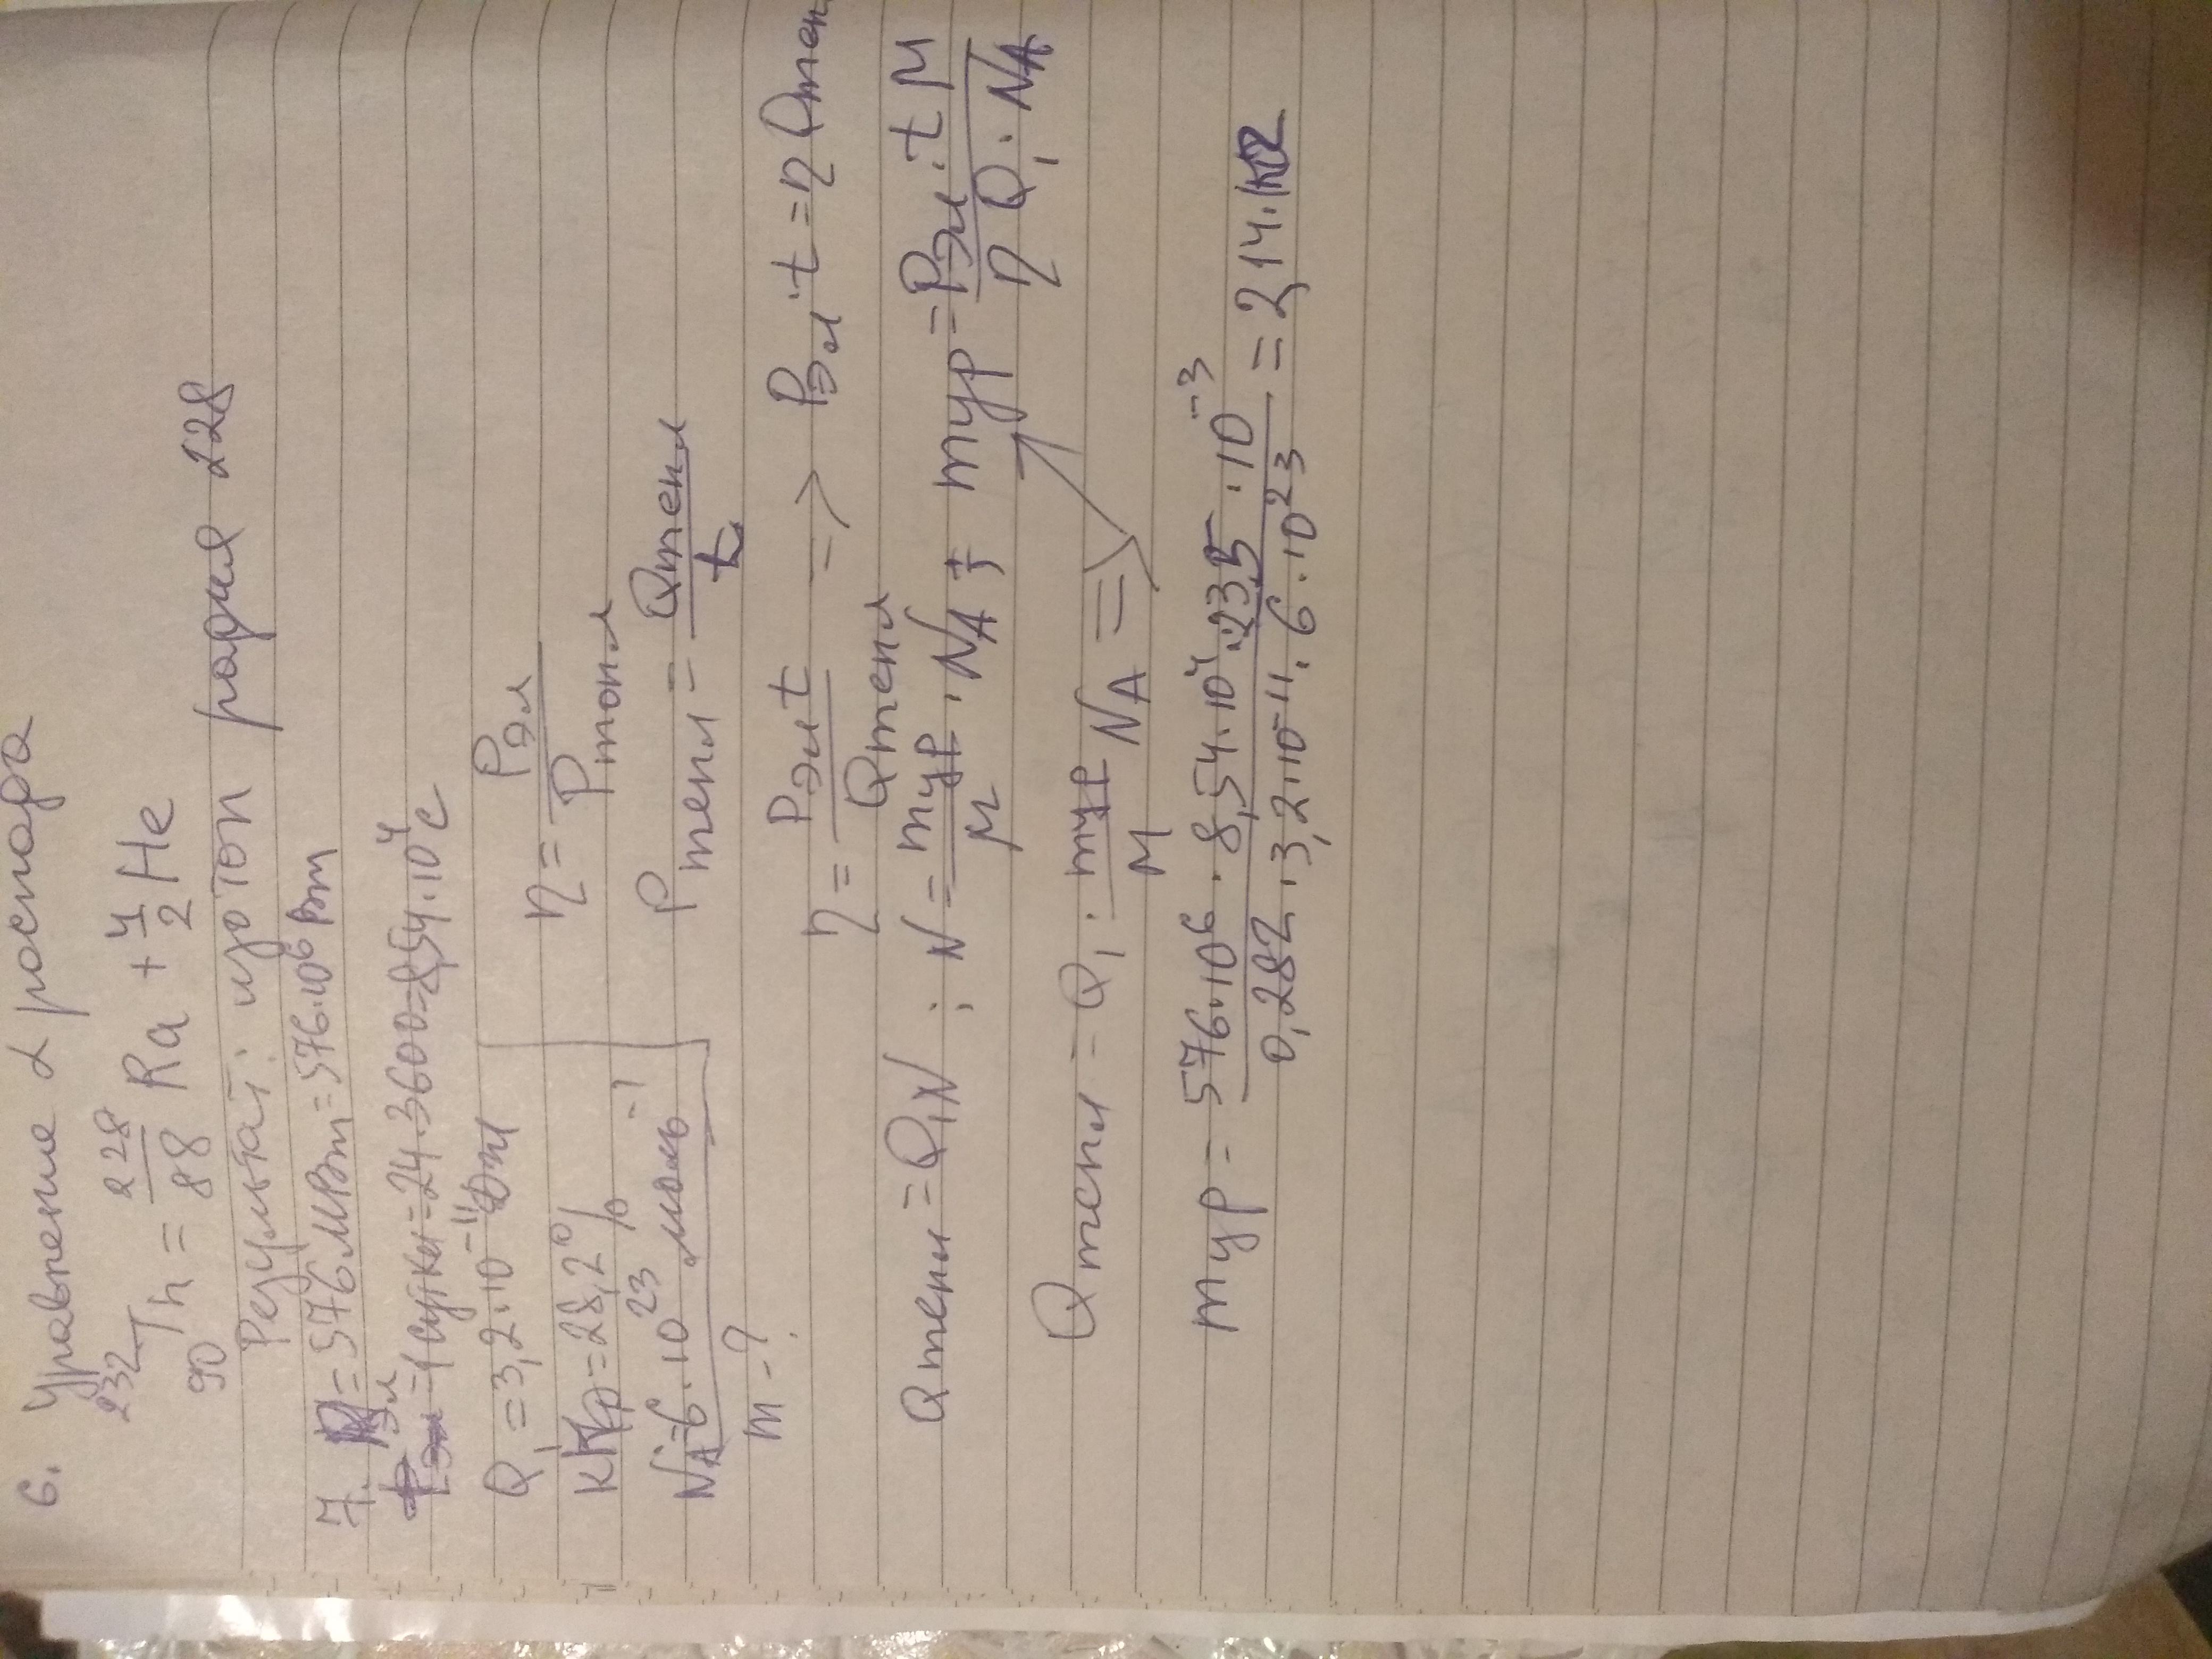 6. Уравнение α распада
²³²₉₀Th = ²²⁸₈₈Ra + ⁴₂He
Результат: изотоп радия 228
7. Pэл = 576 МВт = 576·10⁶ Вт
t = 1 сутки = 24·3600 = 8,54·10⁴ с
Q₁ = 3,2·10⁻¹¹ Дж
КПД = 28,2%
N_A = 6·10²³ моль⁻¹
m - ?
η = Pэл / Pтопл
Pтепл = Qтепл / t
η = Pэл t / Qтепл => Pэл·t = η Qтепл
Qтепл = Q₁N ; N = mур / M · N_A ; mур = Pэл·t M / η Q₁·N_A
Qтепл = Q₁ · mур / M N_A =>
mур = 576·10⁶ · 8,54·10⁴ · 235·10⁻³ / 0,282·3,2·10⁻¹¹·6·10²³ = 2,14 кг